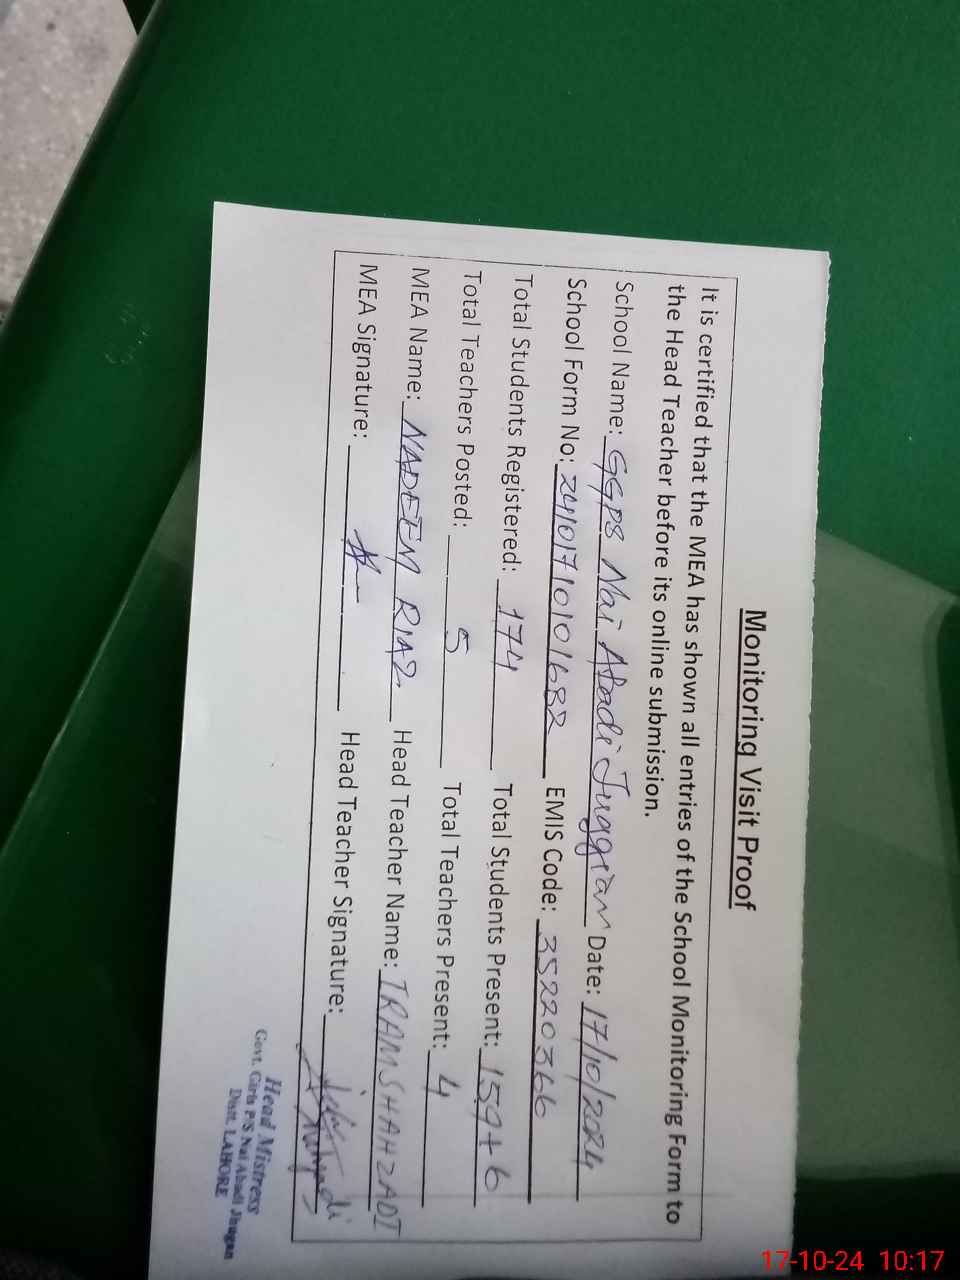 Monitoring Visit Proof
It is certified that the MEA has shown all entries of the School Monitoring Form to
the Head Teacher before its online submission.
School Name: GGPS Nai Abadi Juggian Date: 17/10/2024
School Form No: 24101710101682 EMIS Code: 35220366
Total Students Registered: 174 Total Students Present: 159+6
Total Teachers Posted: 5 Total Teachers Present: 4
MEA Name: NADEEM RIAZ Head Teacher Name: IRAMSHAHZADI
MEA Signature: Head Teacher Signature:
Head Mistress
Govt. Girls P/S Nai Abadi Jhugan
Distt. LAHORE
17-10-24 10:17